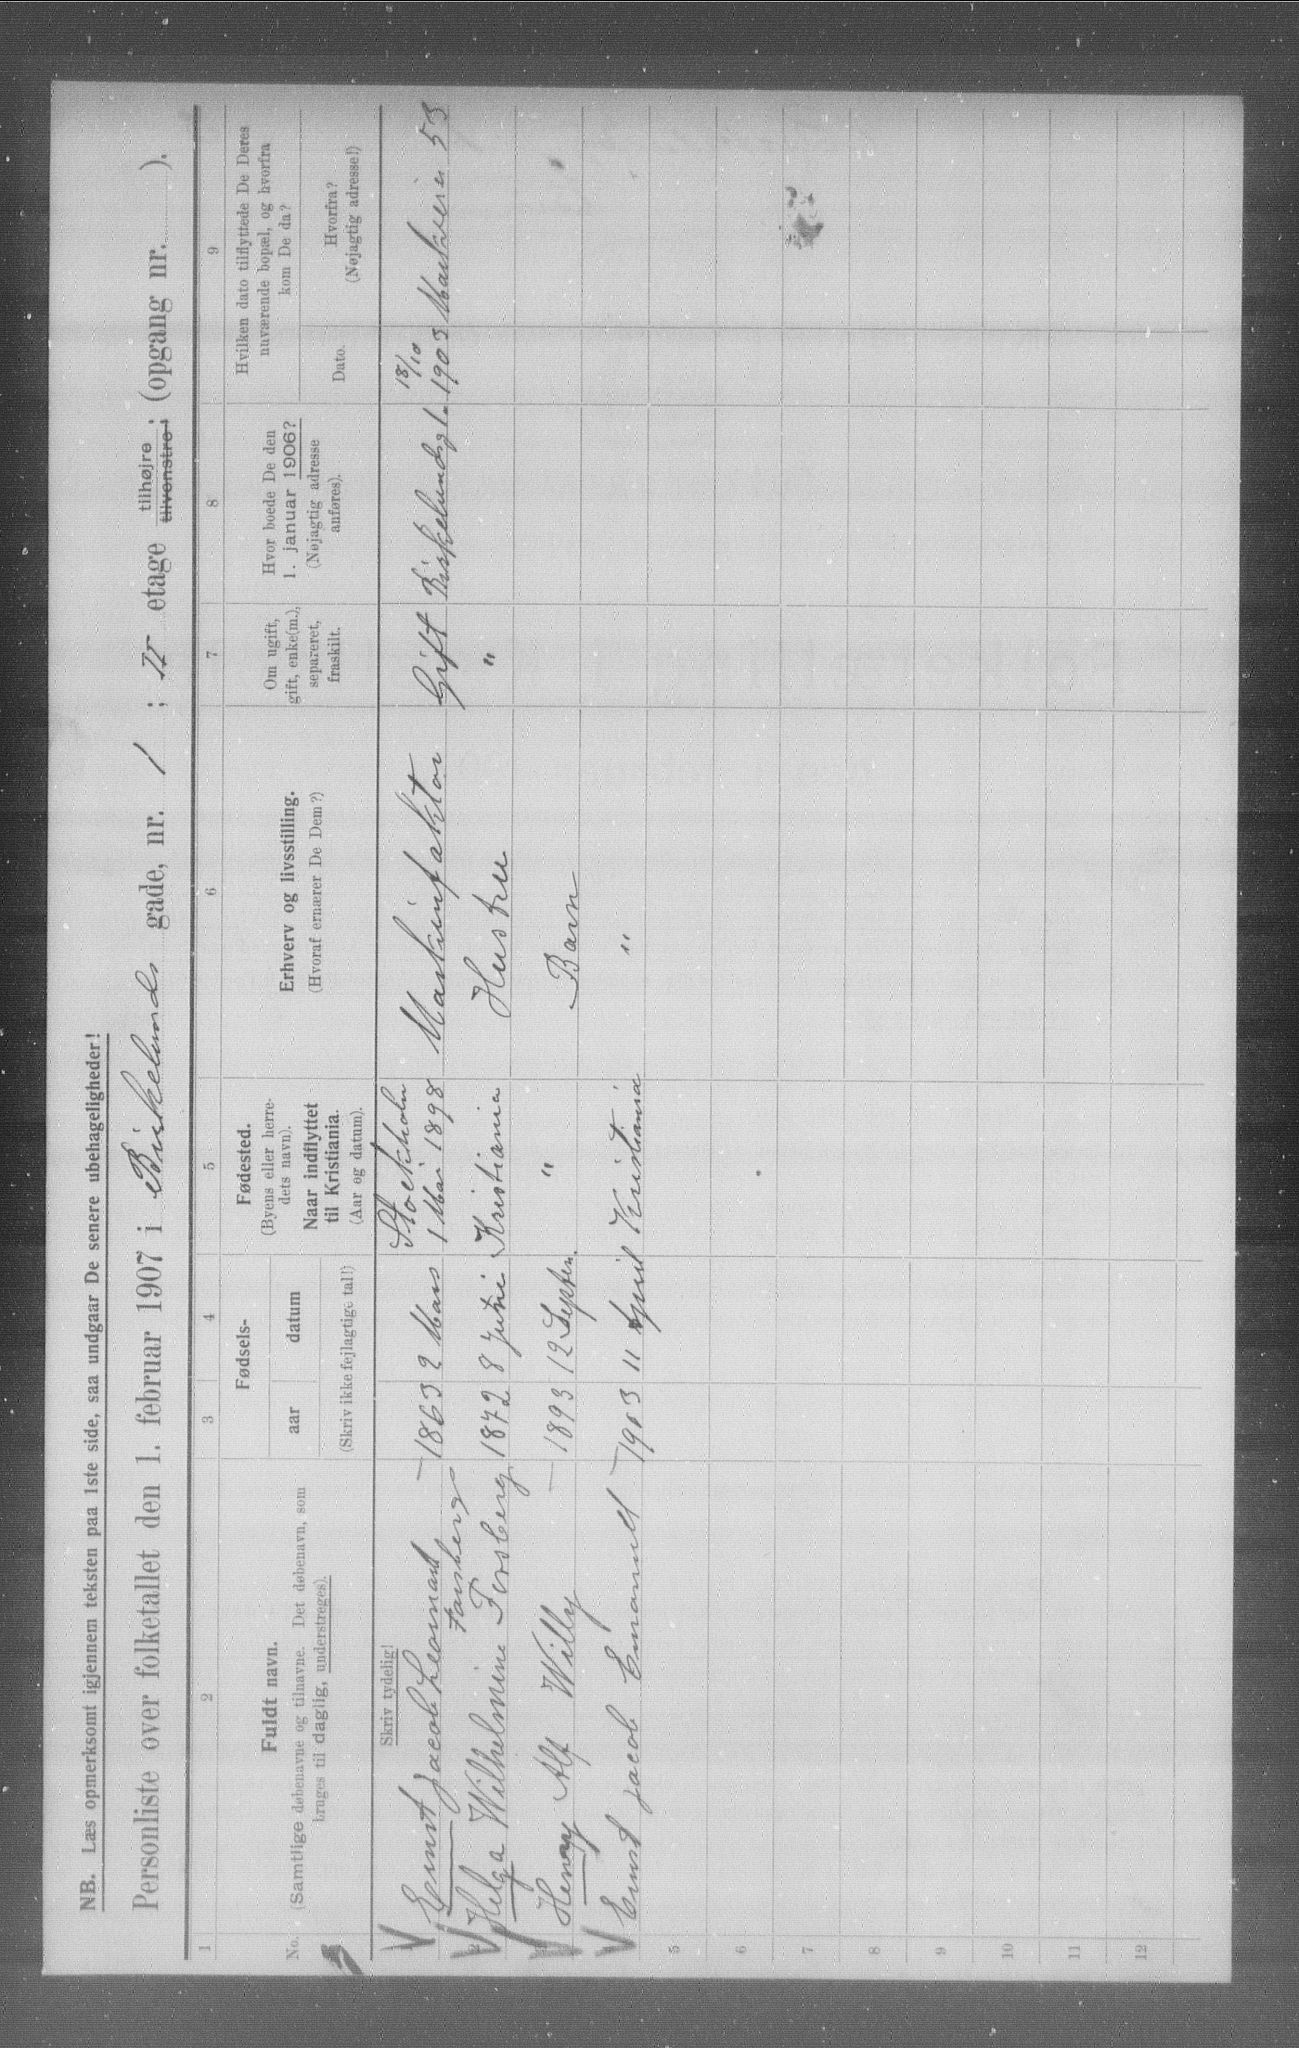 NB. Læs opmerksomt igjennem teksten paa 1ste side, saa undgaar De senere ubehageligheder!
Personliste over folketallet den 1. februar 1907 i Birkelunds gade, nr. 1 ; IV etage tilhøjre ; tilvenstre ; (opgang nr. ).
1 2 3 4 5 6 7 8 9
No.
Fuldt navn.
(Samtlige døbenavne og tilnavne. Det døbenavn, som
bruges til daglig, understreges).
Fødsels-
aar datum
(Skriv ikke fejlagtige tal!)
Fødested.
(Byens eller herre-
dets navn).
Naar indflyttet
til Kristiania.
(Aar og datum).
Erhverv og livsstilling.
(Hvoraf ernærer De Dem?)
Om ugift,
gift, enke(m.),
separeret,
fraskilt.
Hvor boede De den
1. januar 1906?
(Nøjagtig adresse
anføres).
Hvilken dato tilflyttede De Deres
nuværende bopæl, og hvorfra
kom De da?
Dato.
Hvorfra?
(Nøjagtig adresse!)
Skriv tydelig!
Ernst Jacob Leonard Forsberg 1863 2 Mars Stockholm 1 Mai 1898 Maskinfaktor Gift Birkelundsg 1 18/10 1903 Markveien 53
Helga Wilhelmine Forsberg 1872 8 Juni Kristiania Hustru "
Henry Alf Willy 1893 12 Septem. " Barn
Ernst Jacob Emanuel 1903 11 April Kristiania "
5
6
7
8
9
10
11
12